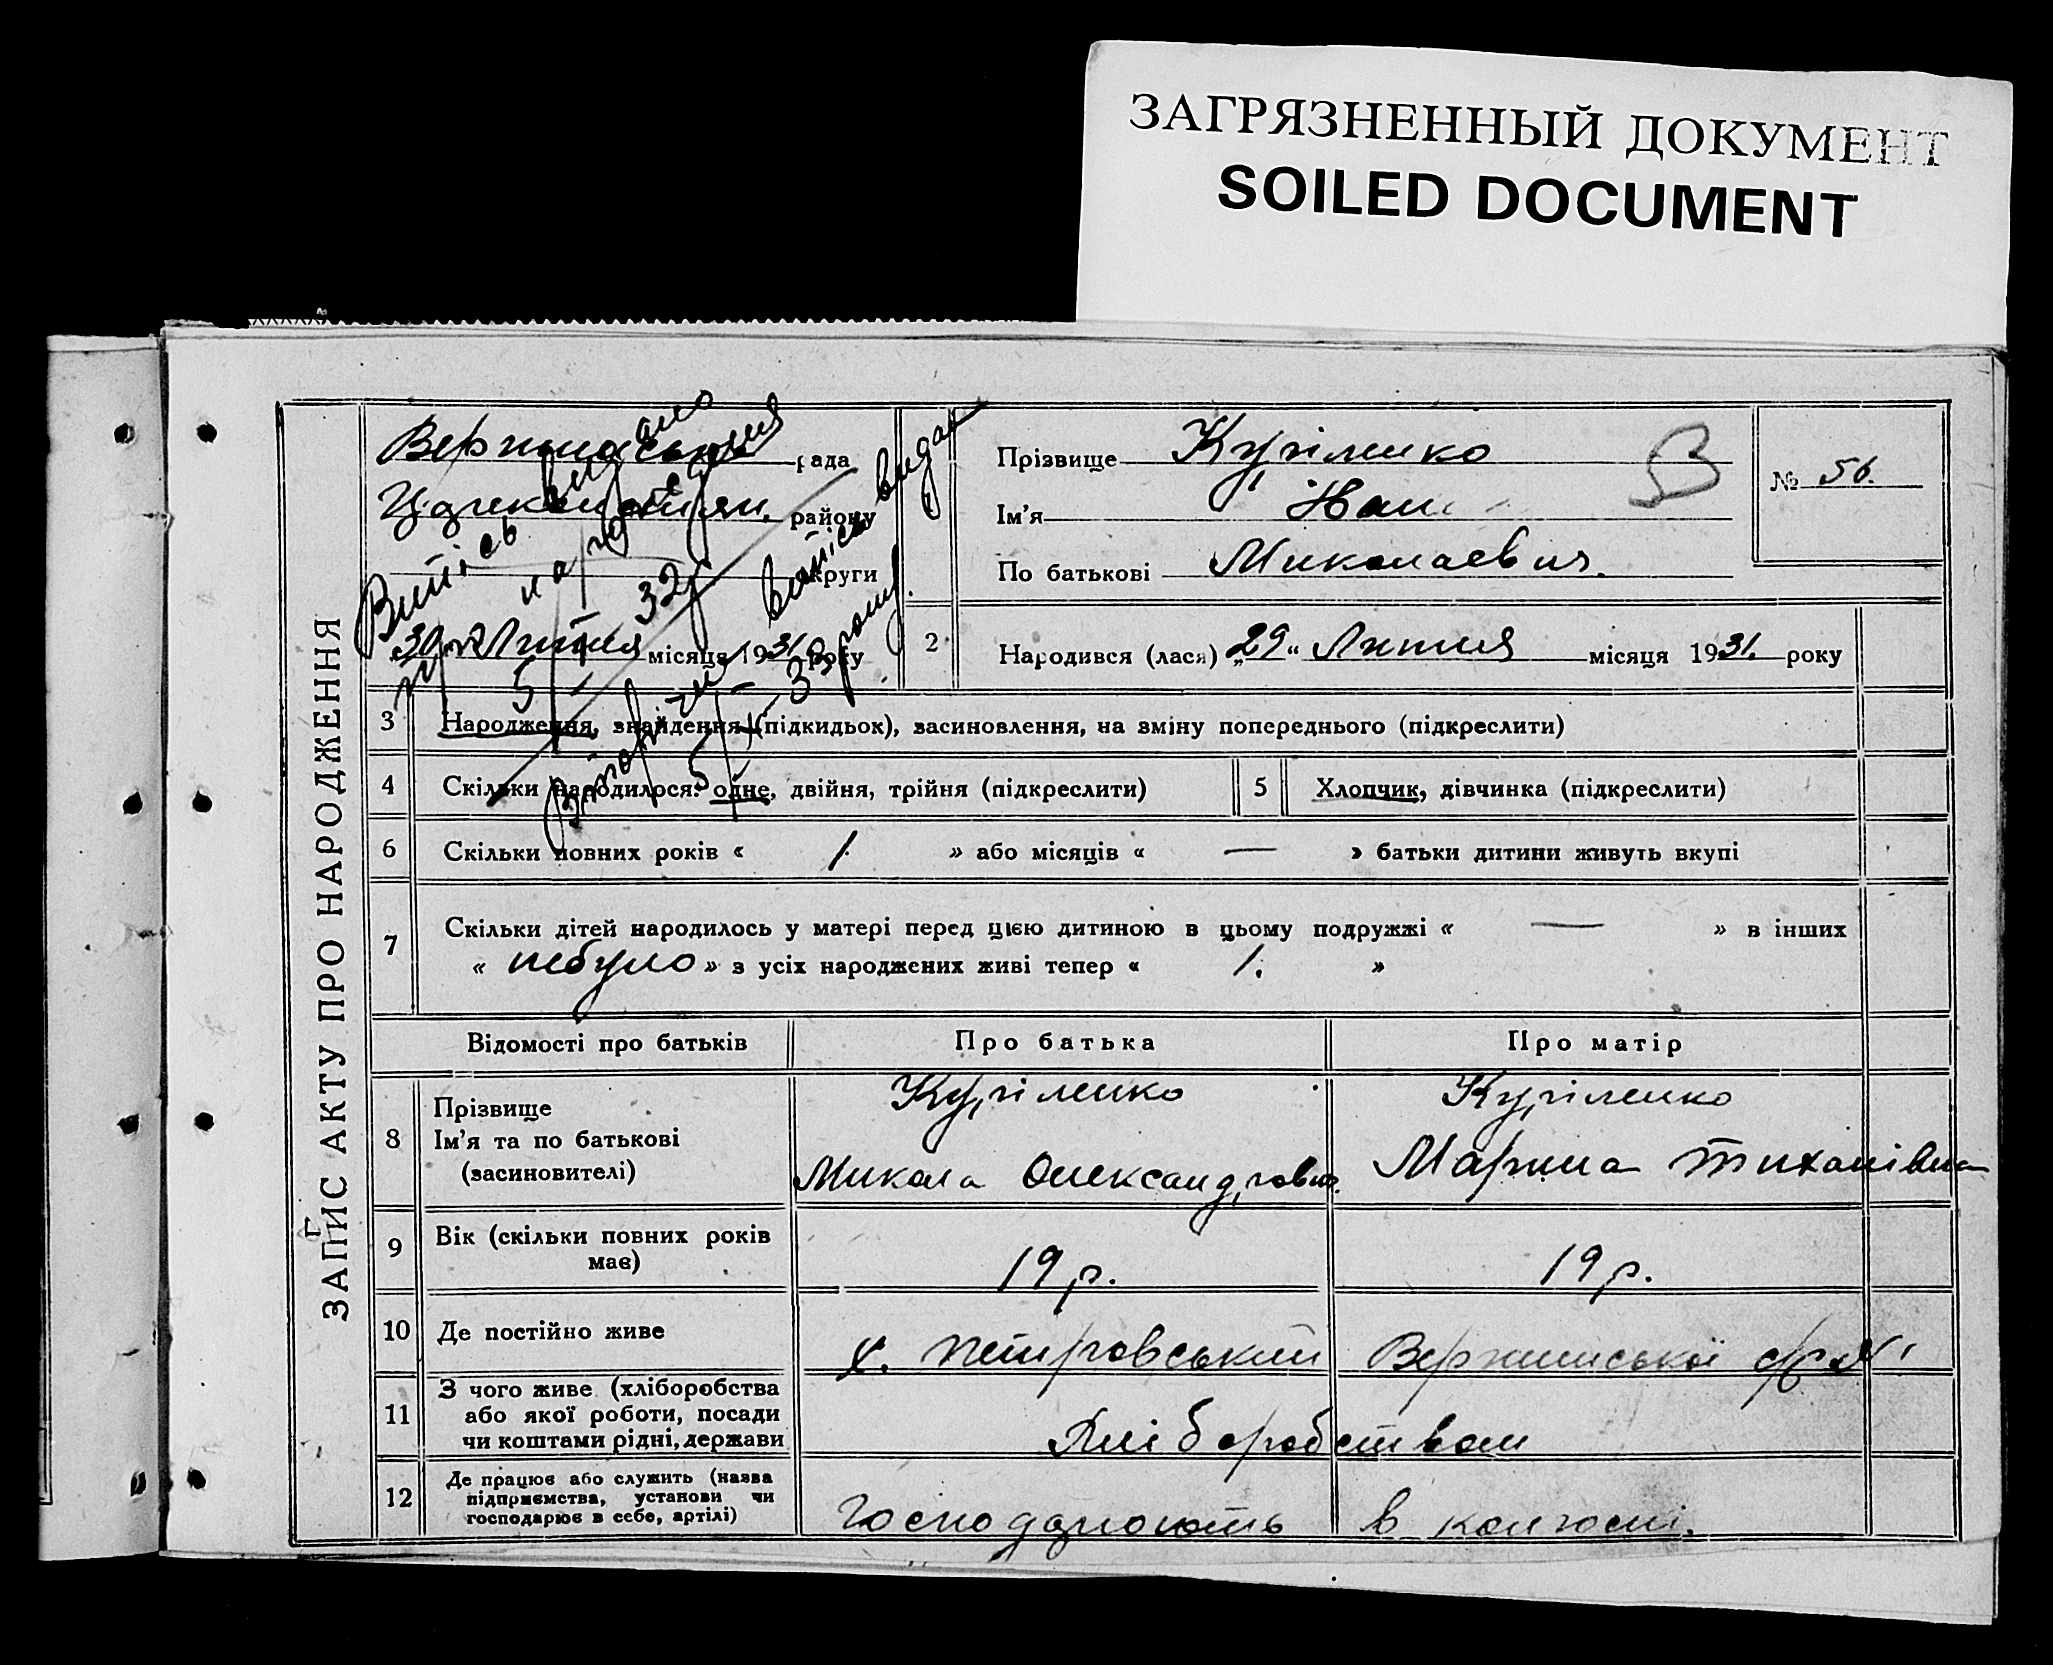 ЗАГРЯЗНЕННЫЙ ДОКУМЕНТ
SOILED DOCUMENT
ЗАПИС АКТУ ПРО НАРОДЖЕННЯ
рада
району
округи
30 Липня місяця 1931 року
Витісь видано
на
32
витісь видан
5
З року
№ 56.
Прізвище Куріленко
Ім'я Іван
По батькові Миколаевич.
В
2 Народився (лася) „29“ Липня місяця 1931. року
3 Народження, знайдення (підкидьох), засиновлення, на зміну попереднього (підкреслити)
4 Скільки народилося: одне, двійня, трійня (підкреслити)
5 Хлопчик, дівчинка (підкреслити)
6 Скільки повних років « 1. » або місяців « — » батьки дитини живуть вкупі
7 Скільки дітей народилось у матері перед цією дитиною в цьому подружжі « — » в інших
« небуло » з усіх народжених живі тепер « 1. »
Відомості про батьків Про батька Про матір
8 Прізвище
Ім'я та по батькові
(засиновителі)
Куріленко
Микола Олександрович.
Куріленко
Марина Тиханівна
9 Вік (скільки повних років
має)
19 р. 19 р.
10 Де постійно живе х. Петровський
11 З чого живе (хліборобства
або якої роботи, посади
чи коштами рідні, держави
Хліборобством
12 Де працює або служить (назва
підприємства, установи чи
господарює в себе, артілі)
Господарюють в колгоспі.